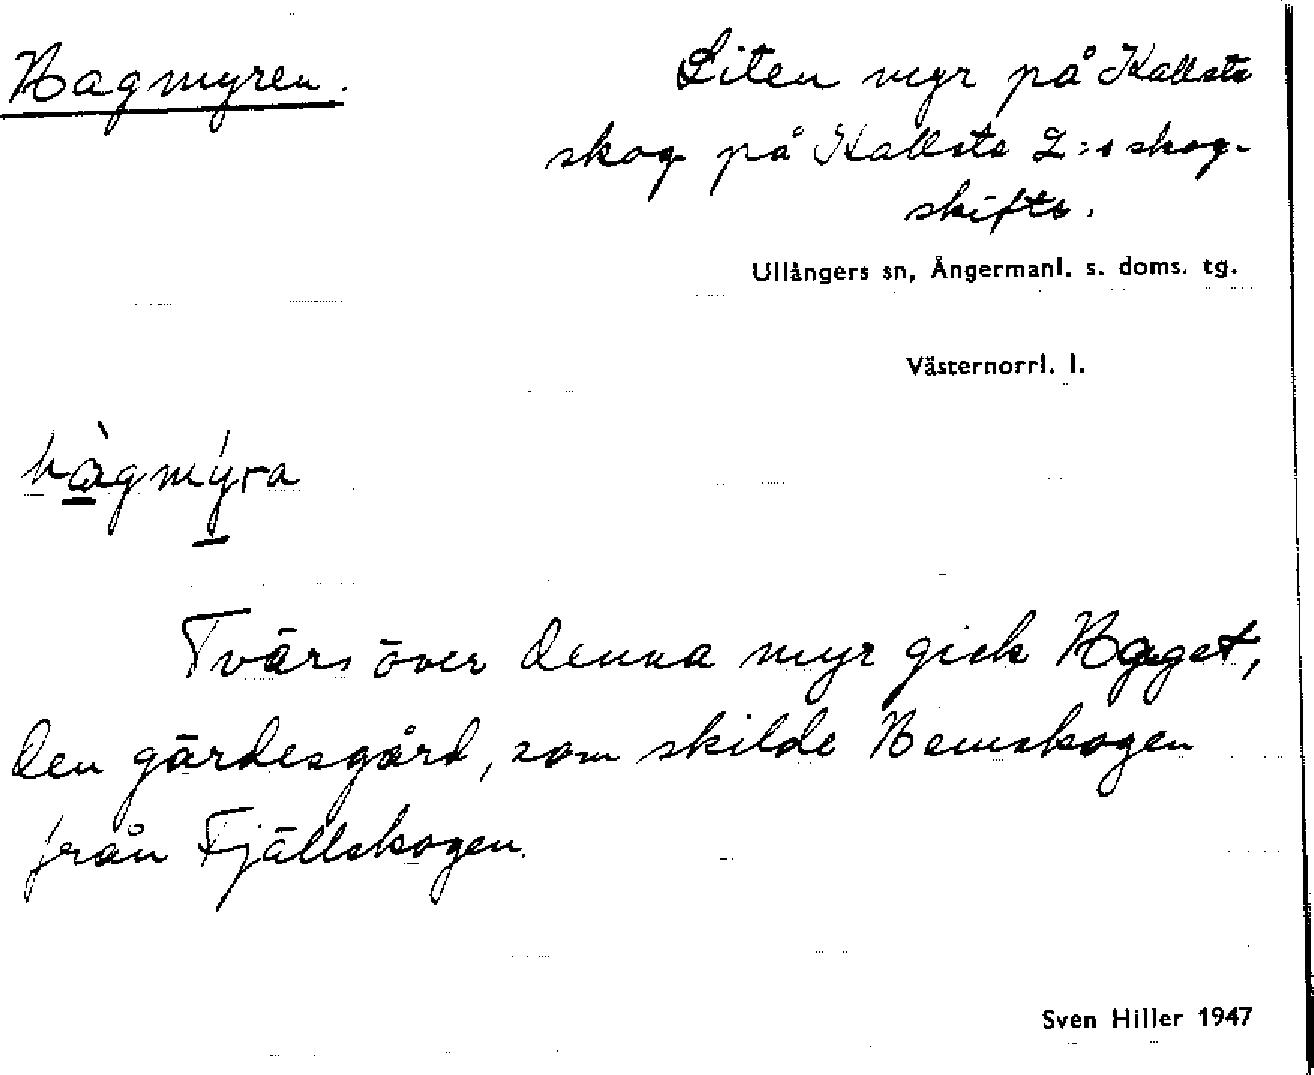 Hagmyren.
Liten myr på Kallsta
skog på Kallsta 2:s skog-
skifte.
Ullångers sn, Ångermanl. s. doms. tg.
Västernorrl. l.
hàgmýra
Tvärs över denna myr gick Hagget,
den gärdesgård, som skilde Hemskogen
från Fjällskogen.
Sven Hiller 1947